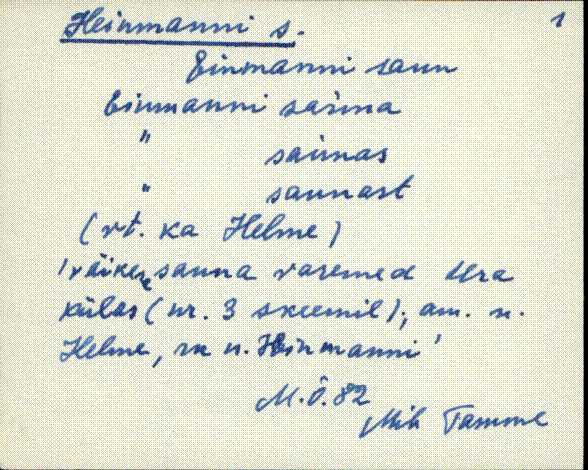 Heinmanni s. 1
Einmanni saun
Einmanni sauna
" saunas
" saunast
(vt. ka Helme)
'väikese sauna varemed Ura
külas (nr. 3 skeemil); am. n.
Helme, rn n. Heinmanni'
M.Õ. 82
Mih Tamme